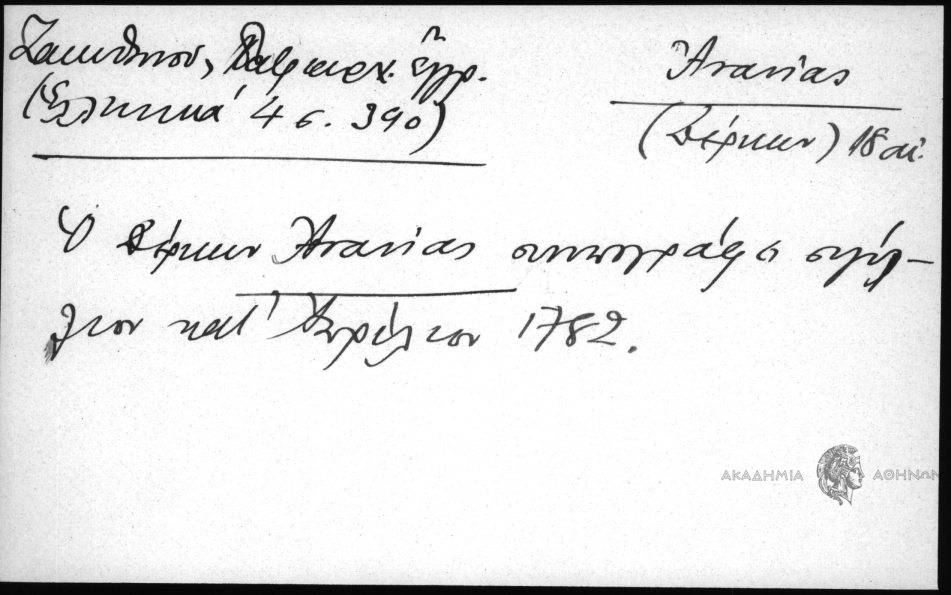 Ζακυθηνού, Πατριαρχ. έγγρ.
(Ἑλληνικά 4 σ. 390)
Ἀνανίας
(Δέρκων) 18 αἰ.
Ὁ Δέρκων Ἀνανίας συνυπογράφει σιγίλ-
λιον κατ' Ἀπρίλιον 1782.
ΑΚΑΔΗΜΙΑ ΑΘΗΝΩΝ